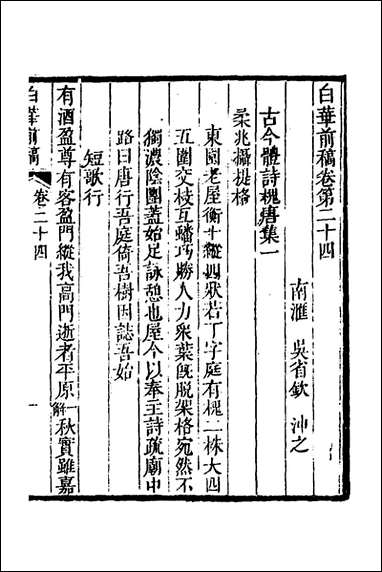 白華前稿卷第二十四
南滙 吳省欽 沖之
古今體詩槐痦集一
柔兆攝提格
東園老屋衡十縱四狀若丁字庭有槐二株大四
五圍交枝互蟠巧勝人力衆葉旣脫架格宛然不
獨濃陰團蓋始足詠憩也屋今以奉主詩疏廟中
路曰唐行吾庭倚吾樹因誌吾始
短歌行
有酒盈尊有客盈門縱我高門逝者平原一解秋實雖嘉
白華前稿 卷二十四 一